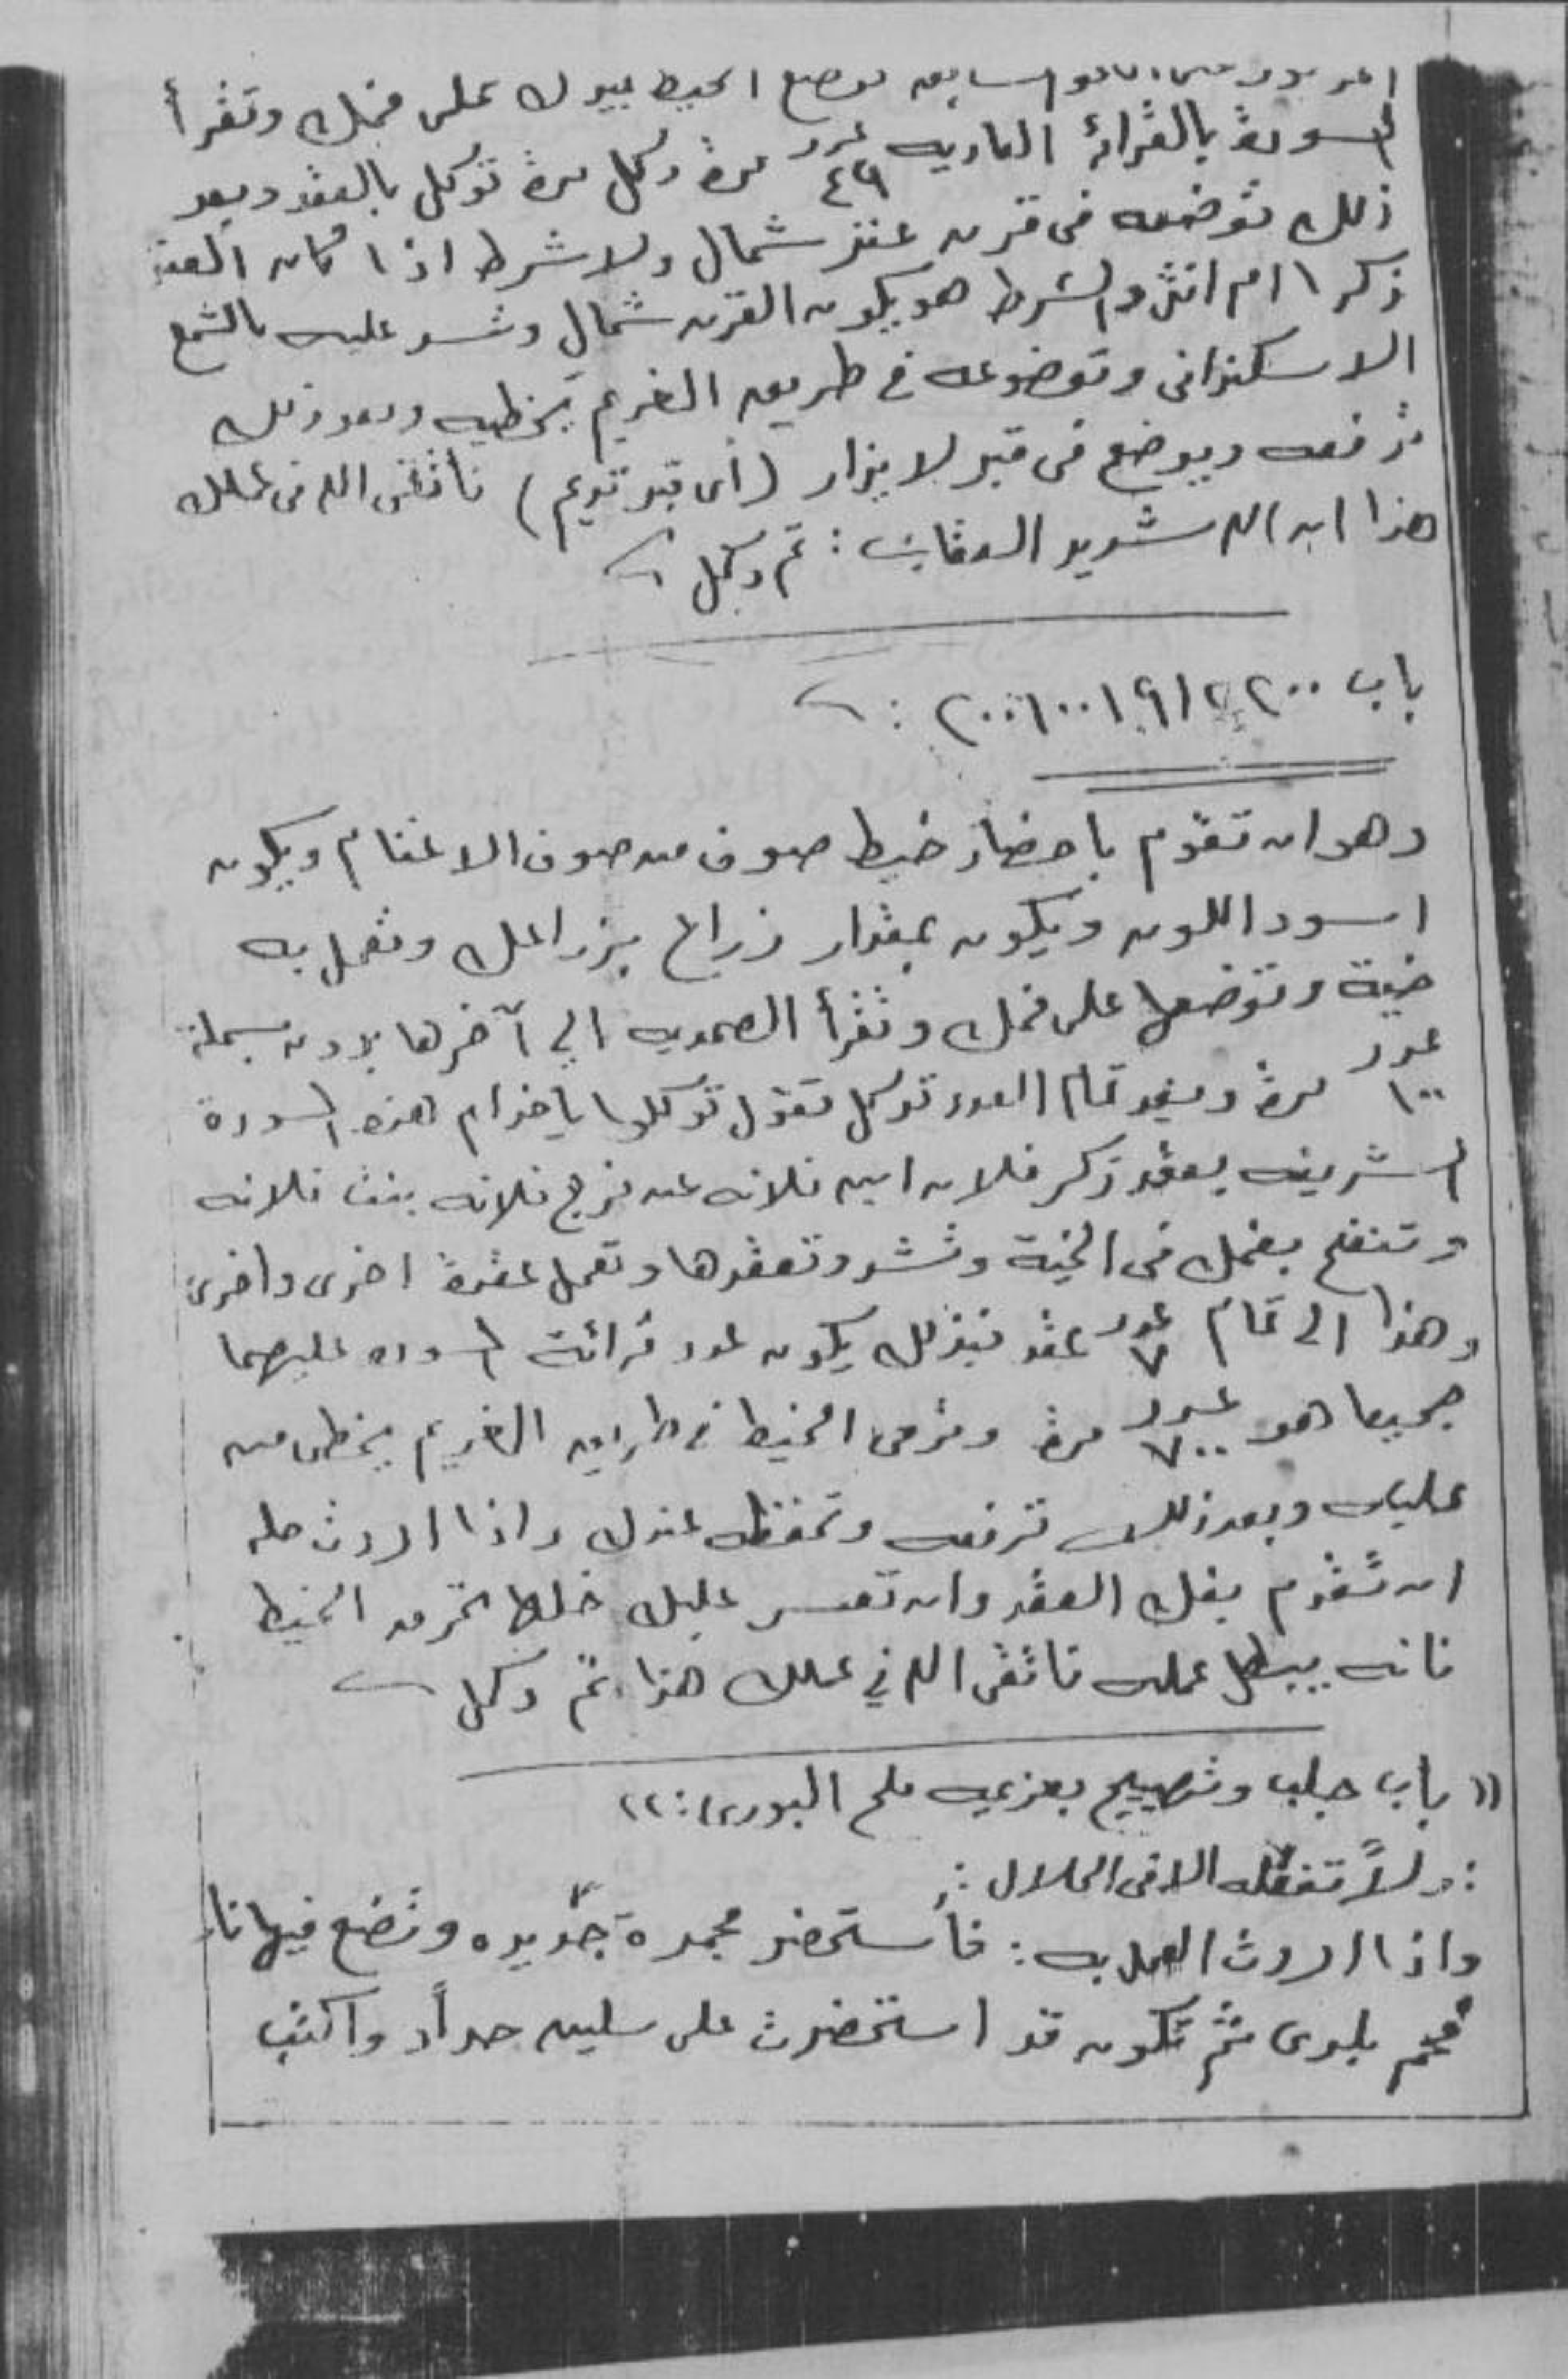 السابعه توضع الخيط بيدك على فخدك وتقرأ
السورة بالقرائه العاديه عدد ٤٩ مرة وكل مرة توكل بالعقد وبعد
ذلك توضعه فى قرن عنز شمال ولا شرط اذا كان العنز
ذكر ا ام انثى والشرط هو يكون القرن شمال وتسد عليه بالشمع
الاسكندرانى وتوضوعه فى طريق الغريم يخطيه وبعد ذلك
ترفعه ويوضع فى قبر لا يزار (أى قبر قديم) فأتقى الله فى عملك
هذا ان الله شديد العقاب : تم وكمل
باب ٢٠٠
وهو ان تقوم باحضار خيط صوف من صوف الاغنام ويكون
اسود اللون ويكون بمقدار زراع بزراعك وتعمل به
خية وتوضعها على فخدك وتقرأ الصمديه الي آخرها بدون بسملة
عدد ١٠٠ مرة وبعد تمام العدد توكل تقول توكلوا ياخدام هذه السورة
الشريفه بعقد ذكر فلان ابن فلانه عن فرج فلانه بنت فلانه
وتنفخ بفمك فى الخية وتشد وتعقدها وتعمل عقدة اخرى واخرى
وهذا الى تمام عدد ٧ عقد فبذلك يكون عدد قرائة السوره عليهما
جميعا هو عدد ٧٠٠ مرة وترمى الخيط فى طريق الغريم يخطى من
عليه وبعد ذلك ترفعه وتحفظه عندك واذا اردت حله
ان تقوم بفك العقد وان تعسر عليك حلها تحرق الخيط
فانه يبطل عمله فاتقى الله في عملك هذا تم وكمل
(( باب جلب وتهييج بعزيمه ملح البورى : ))
: ولاً تفعله الا فى الحلال :
واذا اردت العمل به : فأستحضر مجمرة جديده وتضع فيها نار
فحم بلدى ثم تكون قد استحضرت على سليمه جداً واكتب